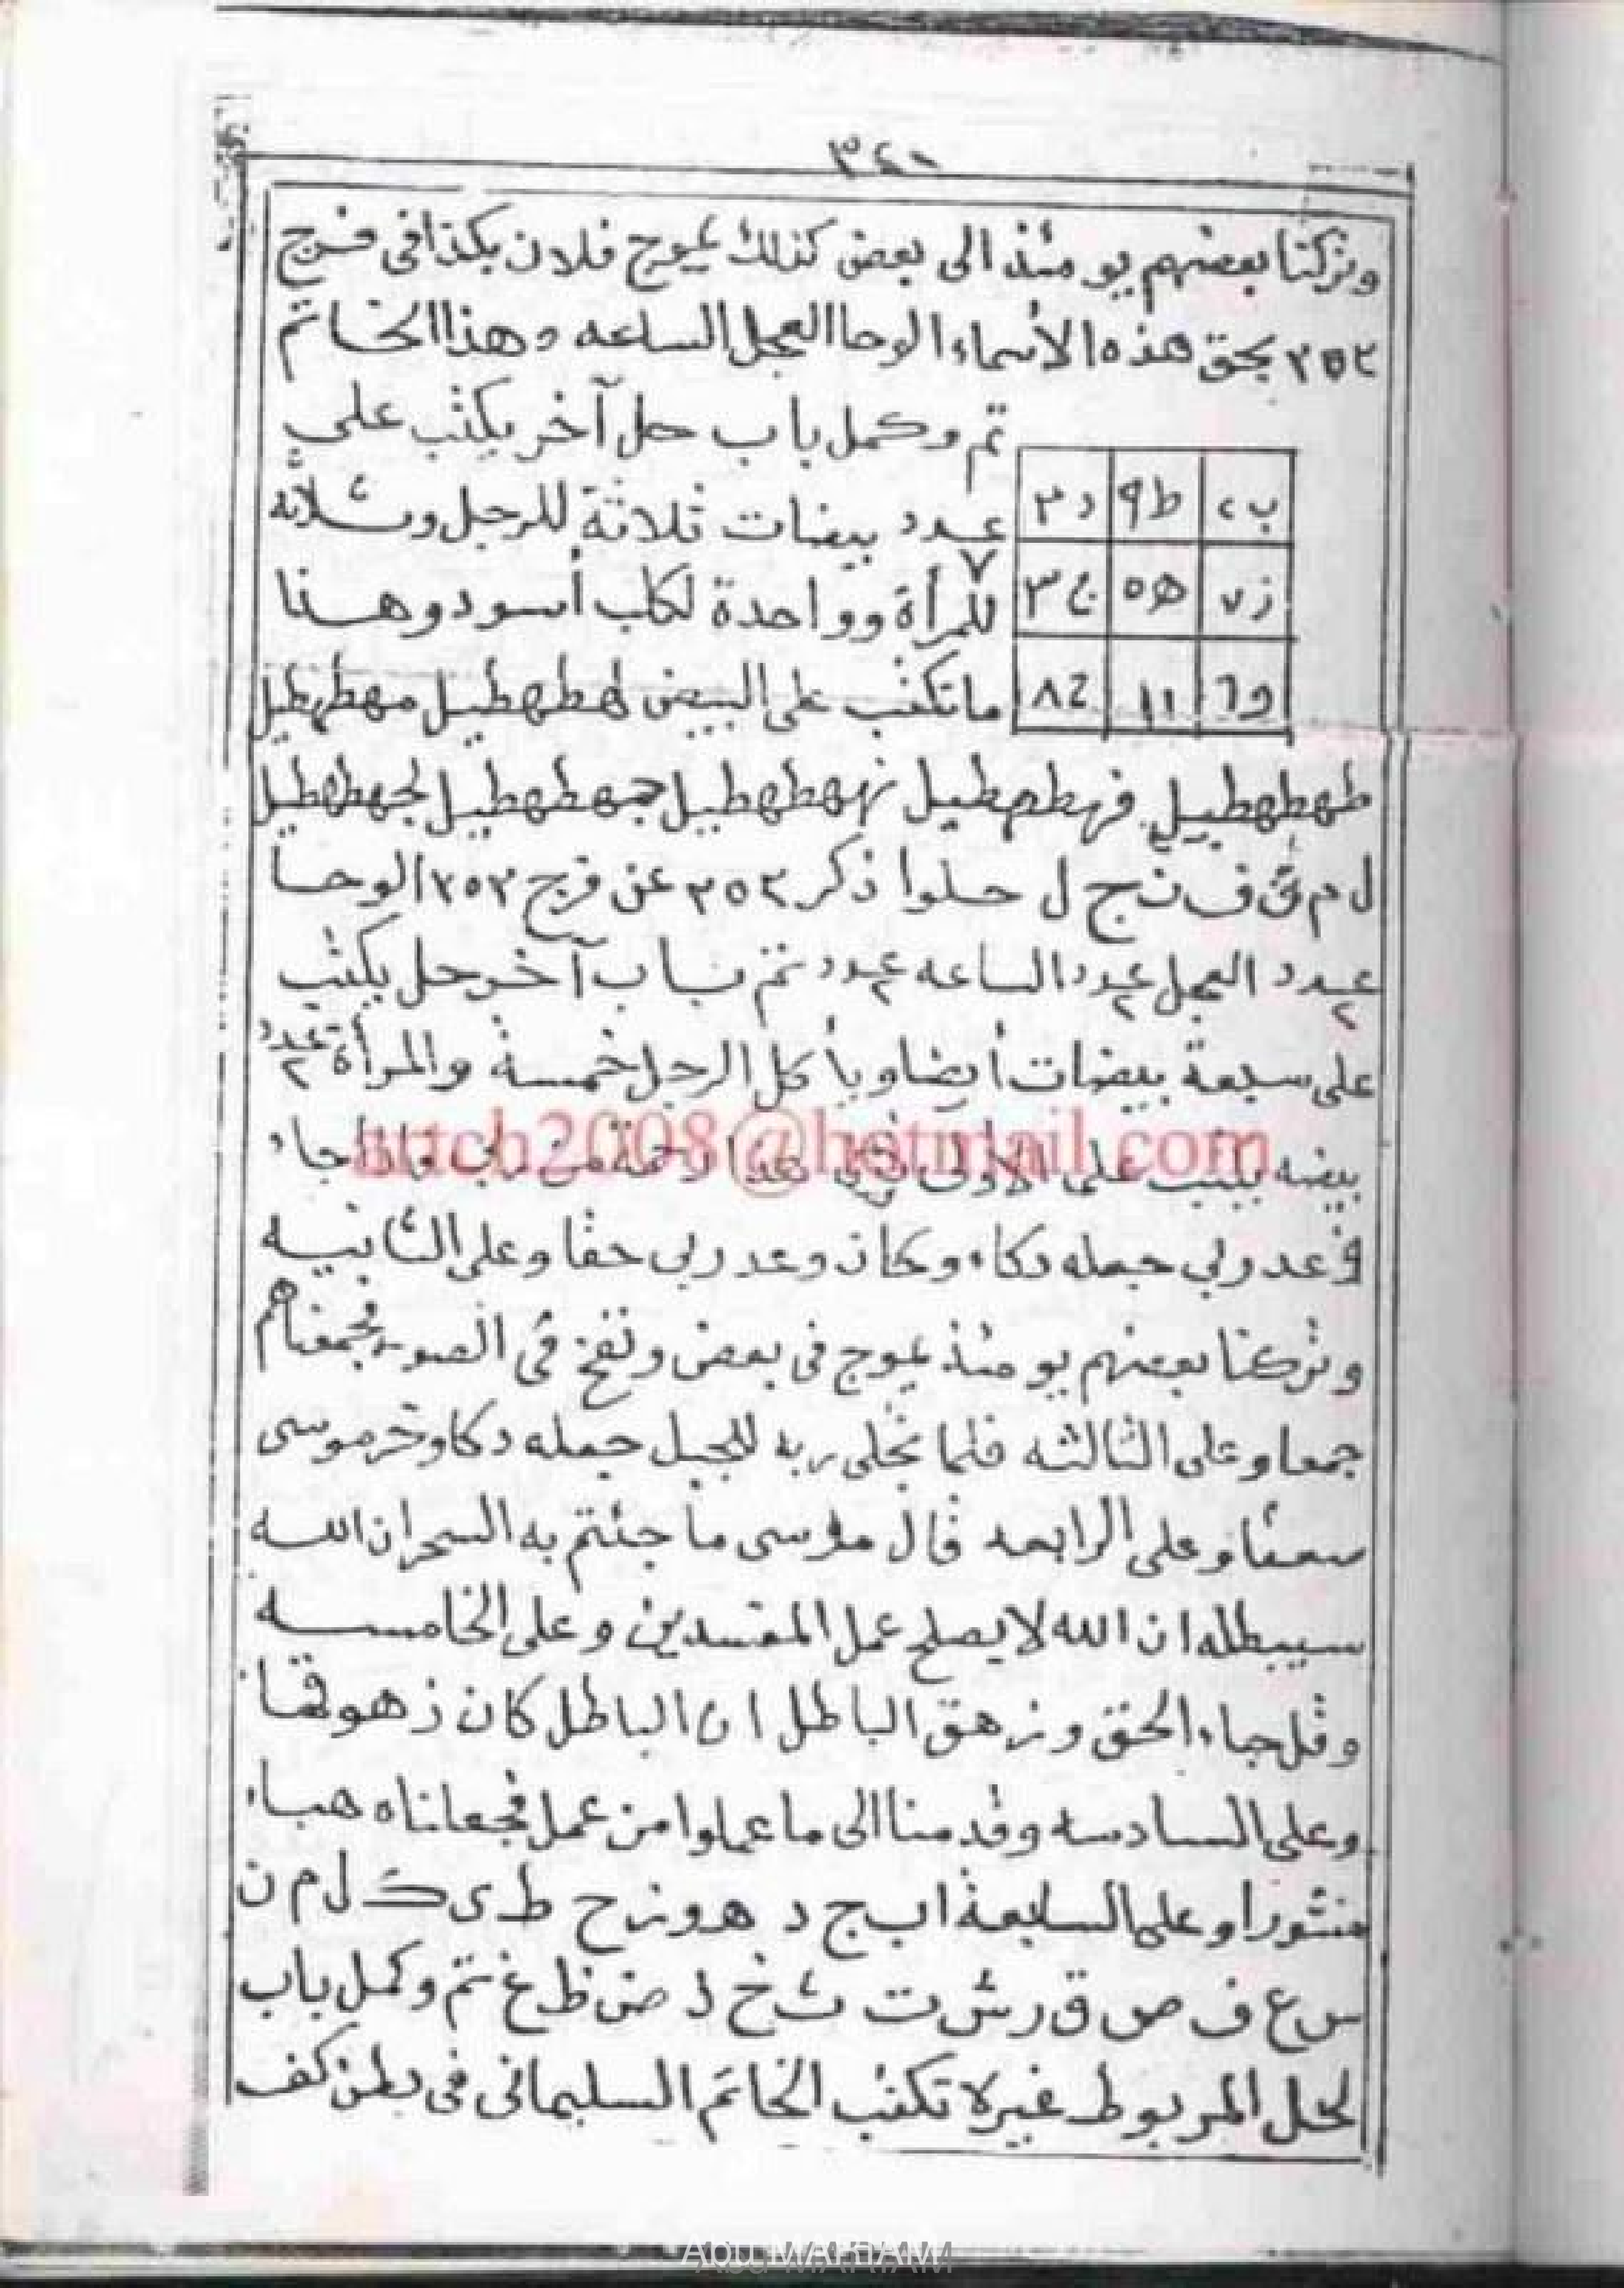 ٣٤١
وتركنا بعضهم يومئذ الى بعض كذلك يموج فلان بكذا فى فرج
٢٥٢ بحق هذه الأسماء الوحا العجل الساعه وهذا الخاتم
تم وكمل باب حل آخر يكتب على
عدد ٧ بيضات ثلاثة للرجل وثلاثه
للمرأة وواحدة لكلب أسود وهنا
ما تكتب على البيض لهطهطيل مهطهطيل
ب ٢ ط ٩ د ٣
ز ٧ ه ٥ ج ٣
و ٦ ١ ا ح ٨
طهطهطيل فهطهطيل نههطهطيل جهطهطيل لجهطهطيل
ل م ق ف ن ج ل حلوا ذكر ٢٥٢ عن فرج ٢٥٢ الوحا
عدد ٢ العجل عدد ٢ الساعه عدد ٢ تم باب آخر حل يكتب
على سبعة بيضات أيضا ويأكل الرجل خمسة والمرأة عدد ٢
بيضه يكتب على الاولى هذا رحمة من ربى فاذا جاء
وعد ربي جعله دكاء وكان وعد ربى حقا وعلى الثانيه
وتركنا بعضهم يومئذ يموج فى بعض ونفخ فى الصور فجمعناهم
جمعا وعلى الثالثه فلما تجلى ربه للجبل جعله دكا وخر موسى
صعقا وعلى الرابعه قال موسى ما جئتم به السحر ان الله
سيبطله ان الله لا يصلح عمل المفسدين وعلى الخامسه
وقل جاء الحق وزهق الباطل ان الباطل كان زهوقا
وعلى السادسه وقدمنا الى ما عملوا من عمل فجعلناه هباء
منثورا وعلى السابعة ا ب ج د ه و ز ح ط ى ك ل م ن
س ع ف ص ق ر ش ت ث خ ذ ض ظ غ تم وكمل باب
لحل المربوط غيره تكتب الخاتم السليمانى فى بطن كف
attch2008@hotmail.com
Abu MARIAM